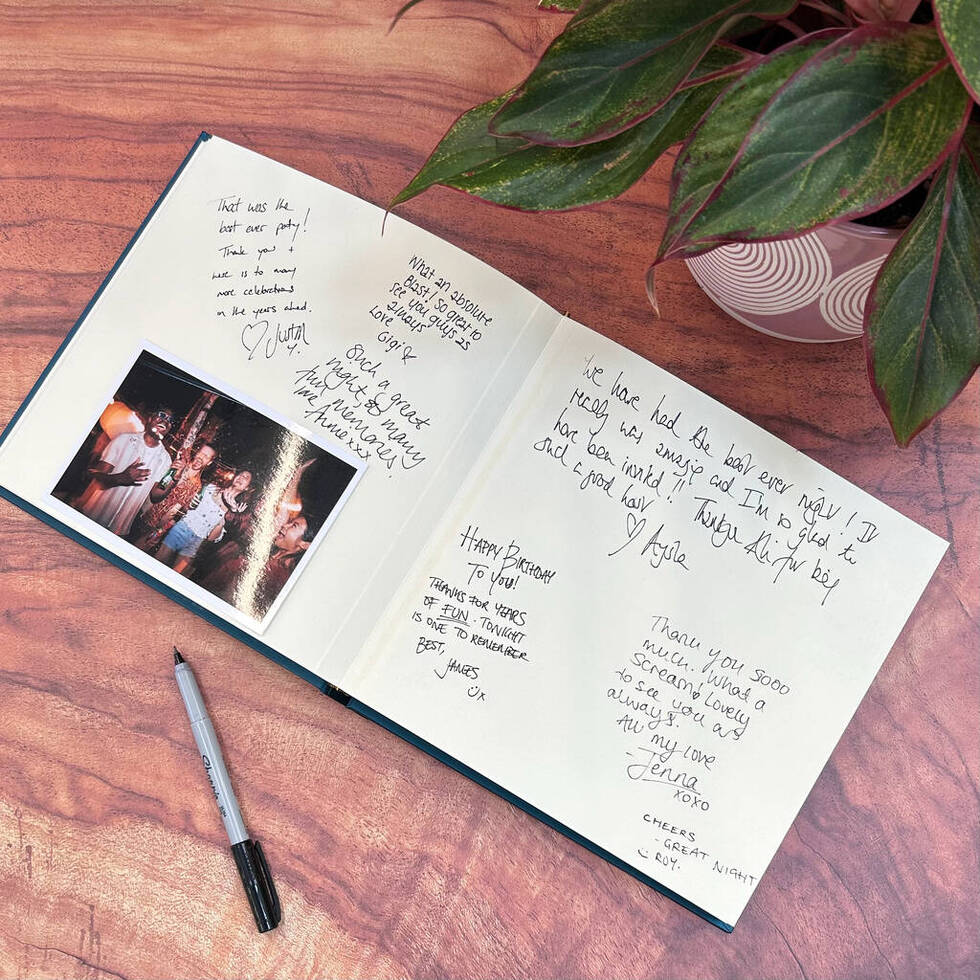 That was the
best ever party!
Thank you +
here is to many
more celebrations
in the years ahead.
♡ Justin
What an absolute
Blast! So great to
see you guys as
always
Love
Gigi x
Such a great
night, so many
fun memories.
love
Anne xxx
We have had the best ever night! It
really was amazing and I'm so glad to
have been invited!! Thankyou Ali for being
such a good host
♡ Aysha
HAPPY BIRTHDAY
TO YOU!
THANKS FOR YEARS
OF FUN. TONIGHT
IS ONE TO REMEMBER
BEST,
JAMES
x
Thank you sooo
much. What a
Scream! Lovely
to see you as
always.
All my love
- Jenna
xoxo
CHEERS
- GREAT NIGHT
ROY.
Sharpie